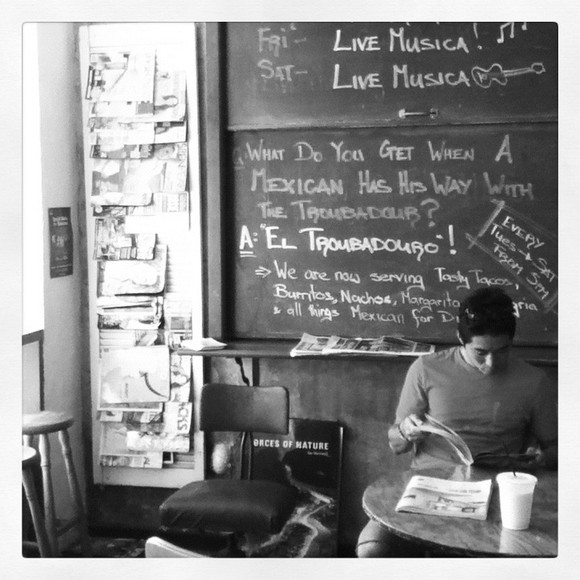 Fri- Live Musica!
Sat- Live Musica
Q. What Do You Get When A
Mexican Has His Way With
The Troubadour?
A: "El Troubadouro"!
⇒ We are now serving Tasty Tacos,
Burritos, Nachos, Margarita
& all things Mexican for
EVERY
Tues → Sat
From 5pm
ORCES OF NATURE